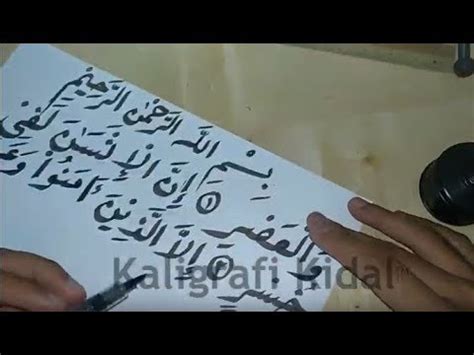 بِسْمِ اللَّهِ الرَّحْمَٰنِ الرَّحِيْمِ
وَالْعَصْرِ ۝ إِنَّ الْإِنْسَٰنَ لَفِيْ
خُسْرٍ ۝ إِلَّا الَّذِيْنَ ءَامَنُوْا
Kaligrafi Kidal